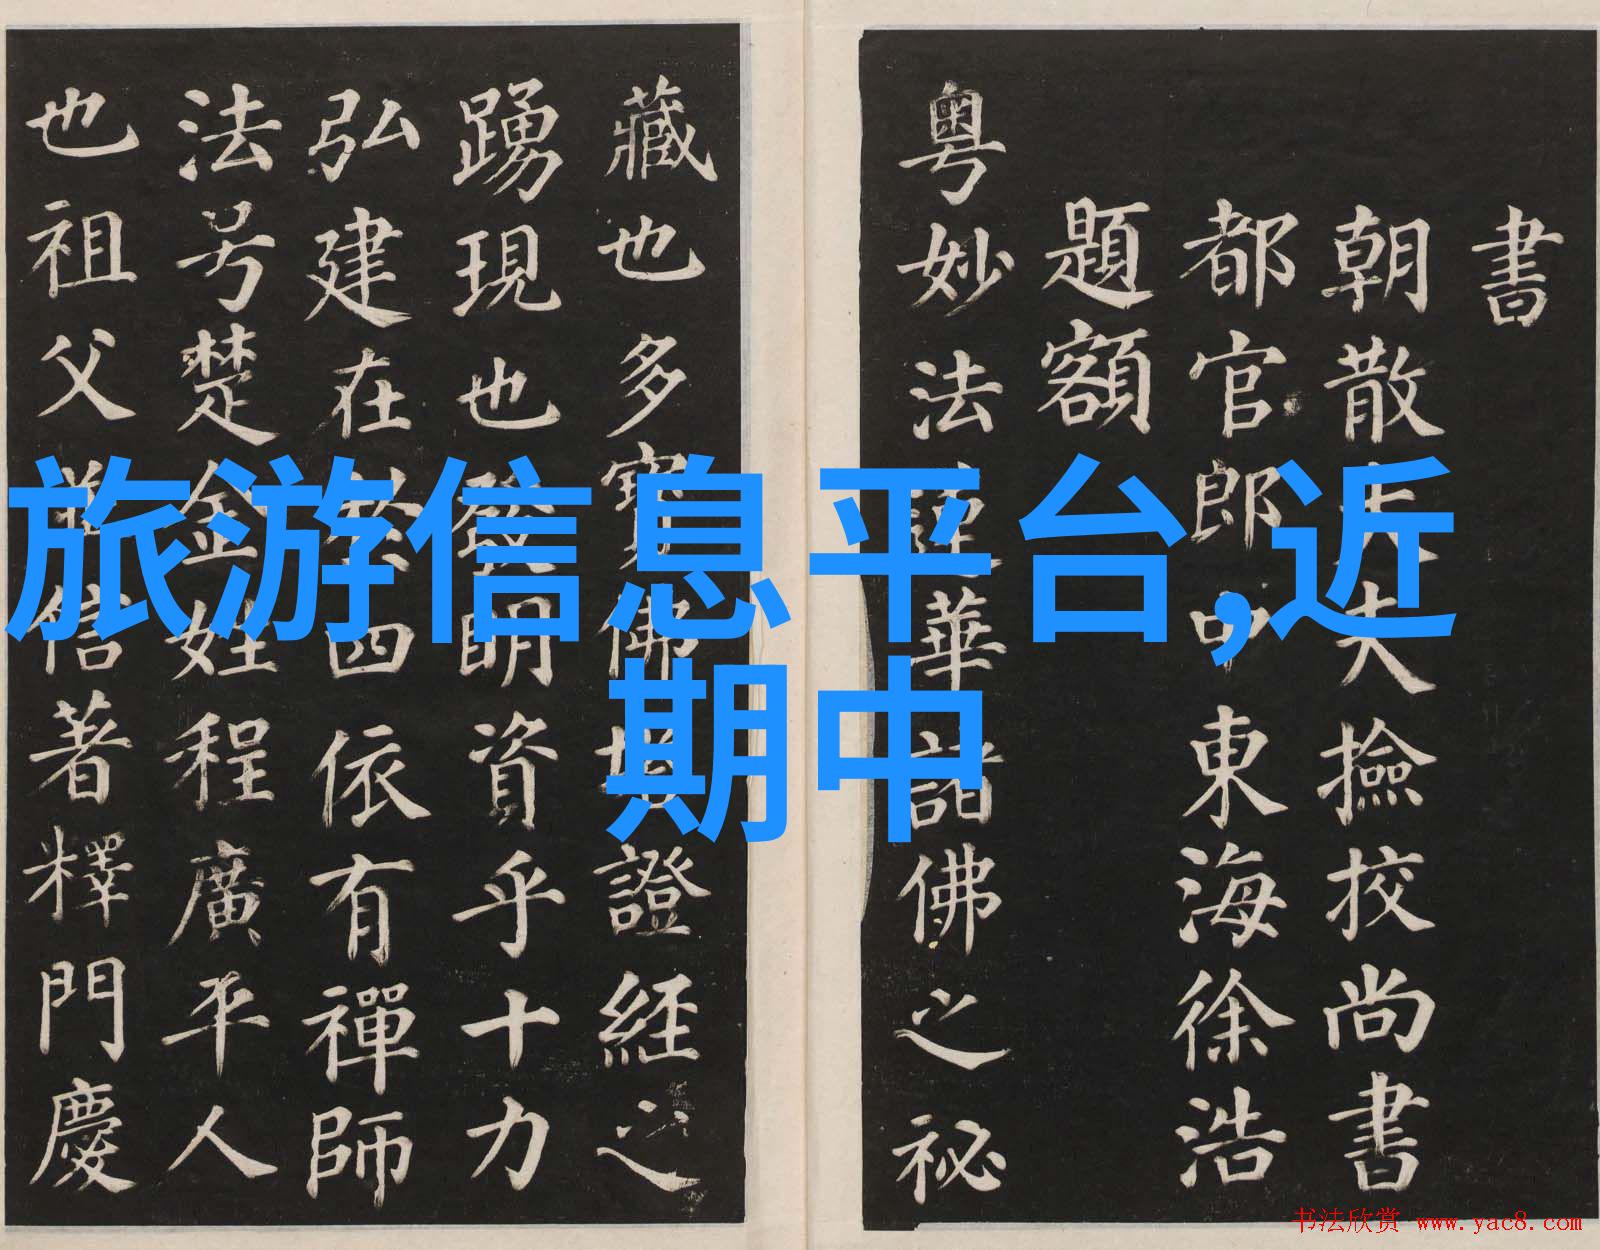 旅游信息平台,近
期中
書
朝散大夫撿挍尚書
都官郎中東海徐浩
題額
粵妙法蓮華諸佛之秘
藏也多寶佛塔證經之
踴現也發明資乎十力
弘建在於四依有禪師
法号楚金姓程廣平人
也祖父並信著釋門慶
书法欣赏 www.yac8.com